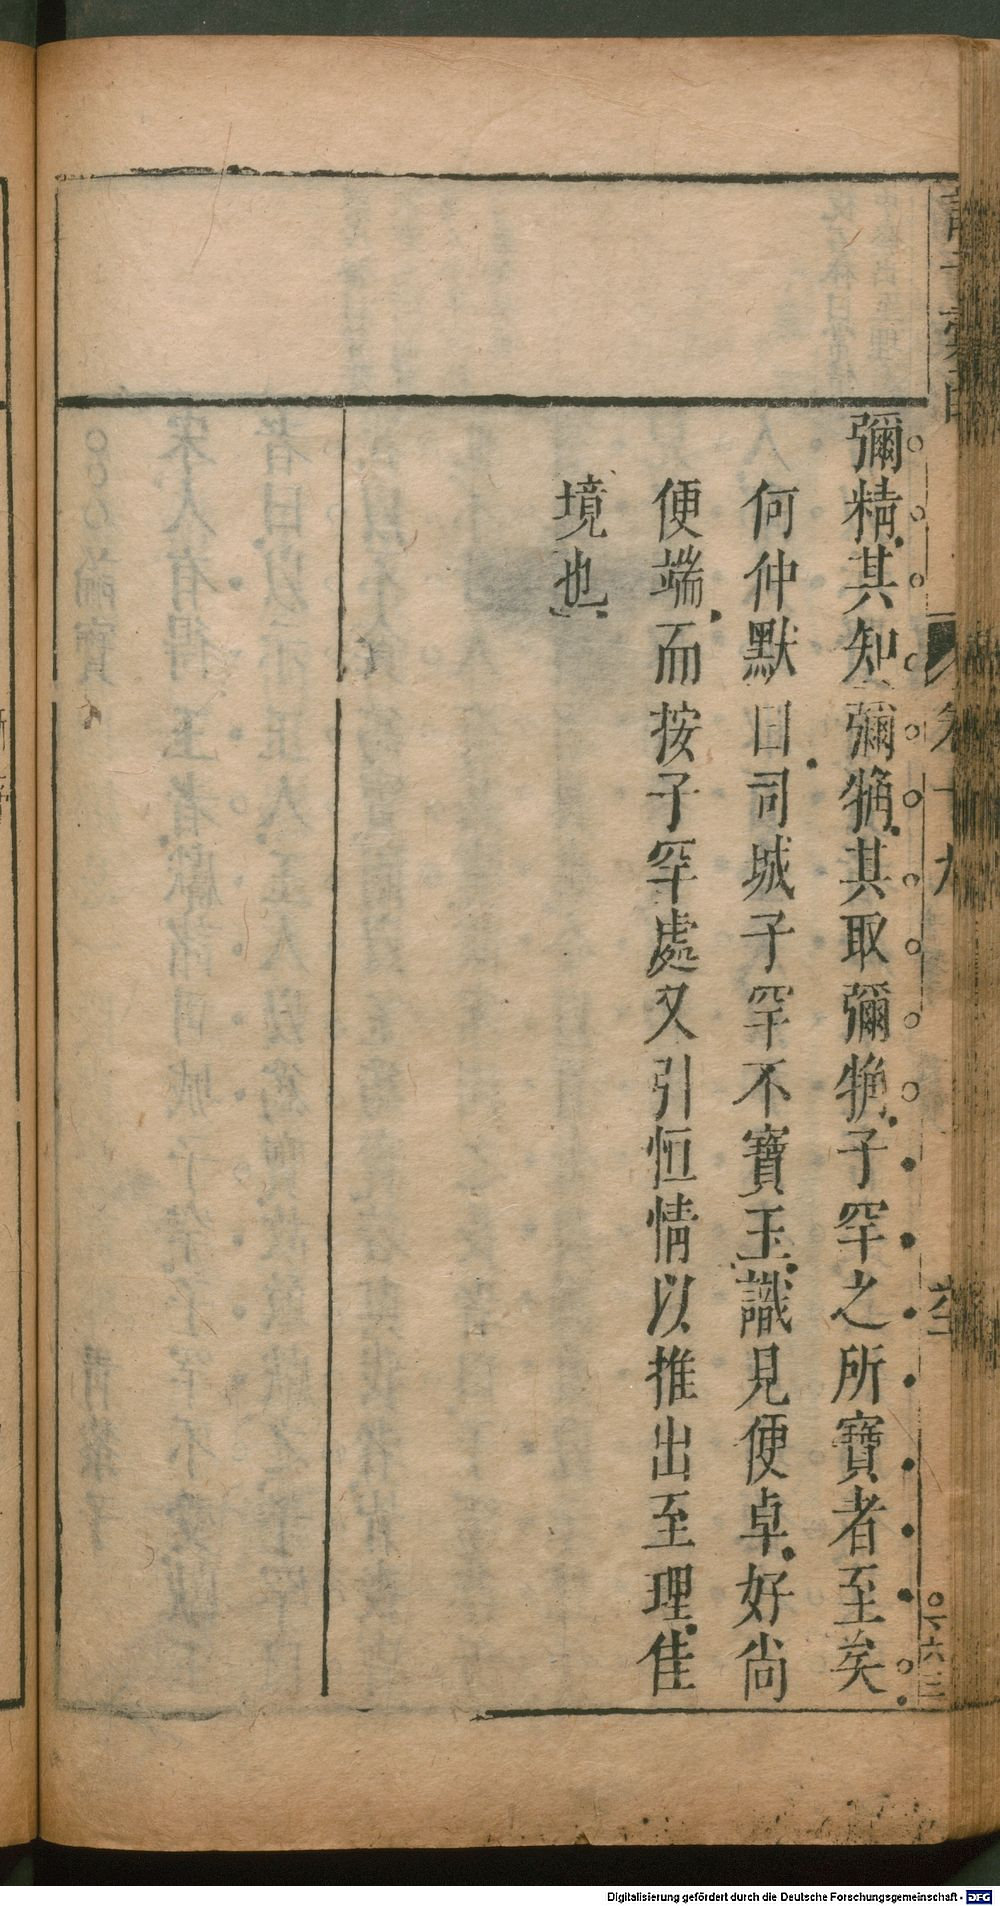 卷十九
彌精其知彌觕其取彌觕子罕之所寶者至矣
何仲默曰司城子罕不寶玉識見便卓好尚
便端而按子罕處又引恒情以推出至理佳
境也
Digitalisierung gefördert durch die Deutsche Forschungsgemeinschaft - DFG